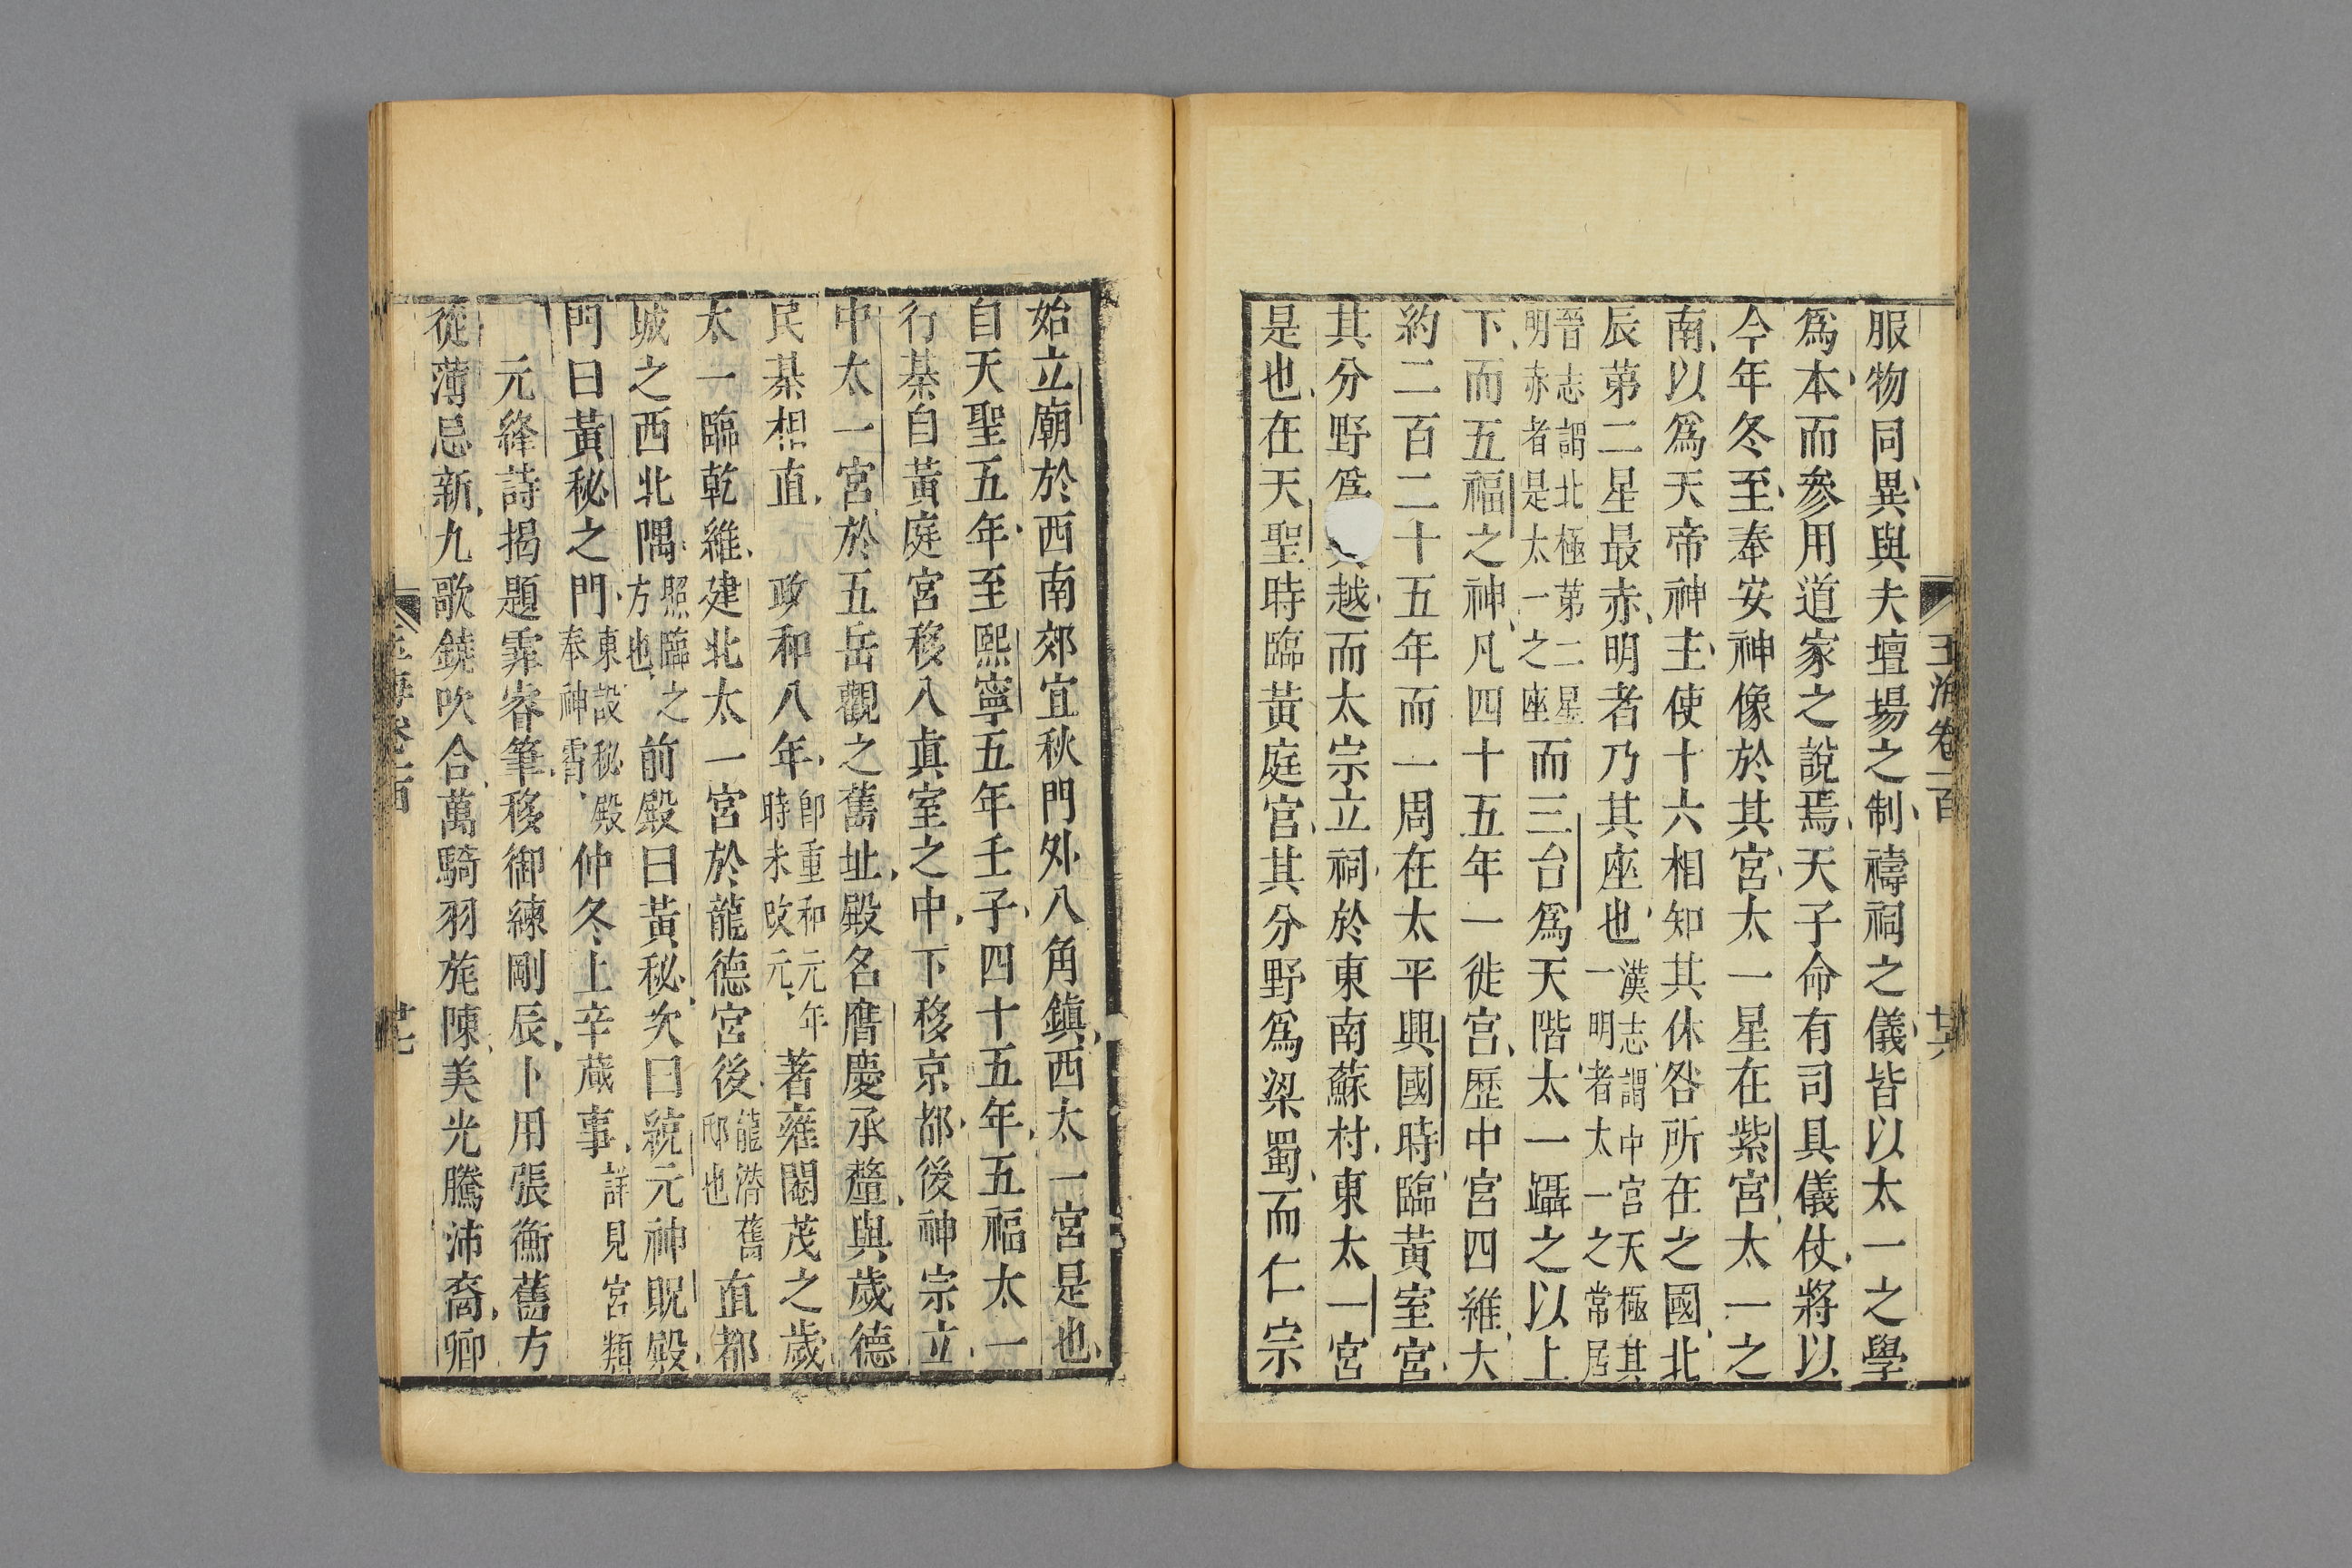 玉海卷一百
廿六
服物同異與夫壇場之制禱祠之儀皆以太一之學
爲本而參用道家之說焉天子命有司具儀仗將以
今年冬至奉安神像於其宮太一星在紫宮太一之
南以爲天帝神主使十六相知其休咎所在之國北
辰第二星最赤明者乃其座也漢志謂中宮天極其一明者太一之常居
晉志謂北極第二星明赤者是太一之座而三台爲天階太一躡之以上
下而五福之神凡四十五年一徙宮歷中宮四維大
約二百二十五年而一周在太平興國時臨黃室宮
其分野爲越而太宗立祠於東南蘇村東太一宮
是也在天聖時臨黃庭宮其分野爲梁蜀而仁宗
始立廟於西南郊宜秋門外八角鎮西太一宮是也
自天聖五年至熙寧五年壬子四十五年五福太一
行棊自黃庭宮移入真室之中下移京都後神宗立
中太一宮於五岳觀之舊址殿名膺慶承釐與歲德
民棊相直 政和八年卽重和元年時未改元著雍閹茂之歲
太一臨乾維建北太一宮於龍德宮後龍潛舊邸也直都
城之西北隅照臨之方也前殿曰黃秘次曰統元神貺殿
門曰黃秘之門東設秘殿奉神霄仲冬上辛蕆事詳見宮類
元絳詩揭題霏睿筆移御練剛辰卜用張衡舊方
從薄忌新九歌鐃吹合萬騎羽旄陳美光騰沛裔卿
廿七